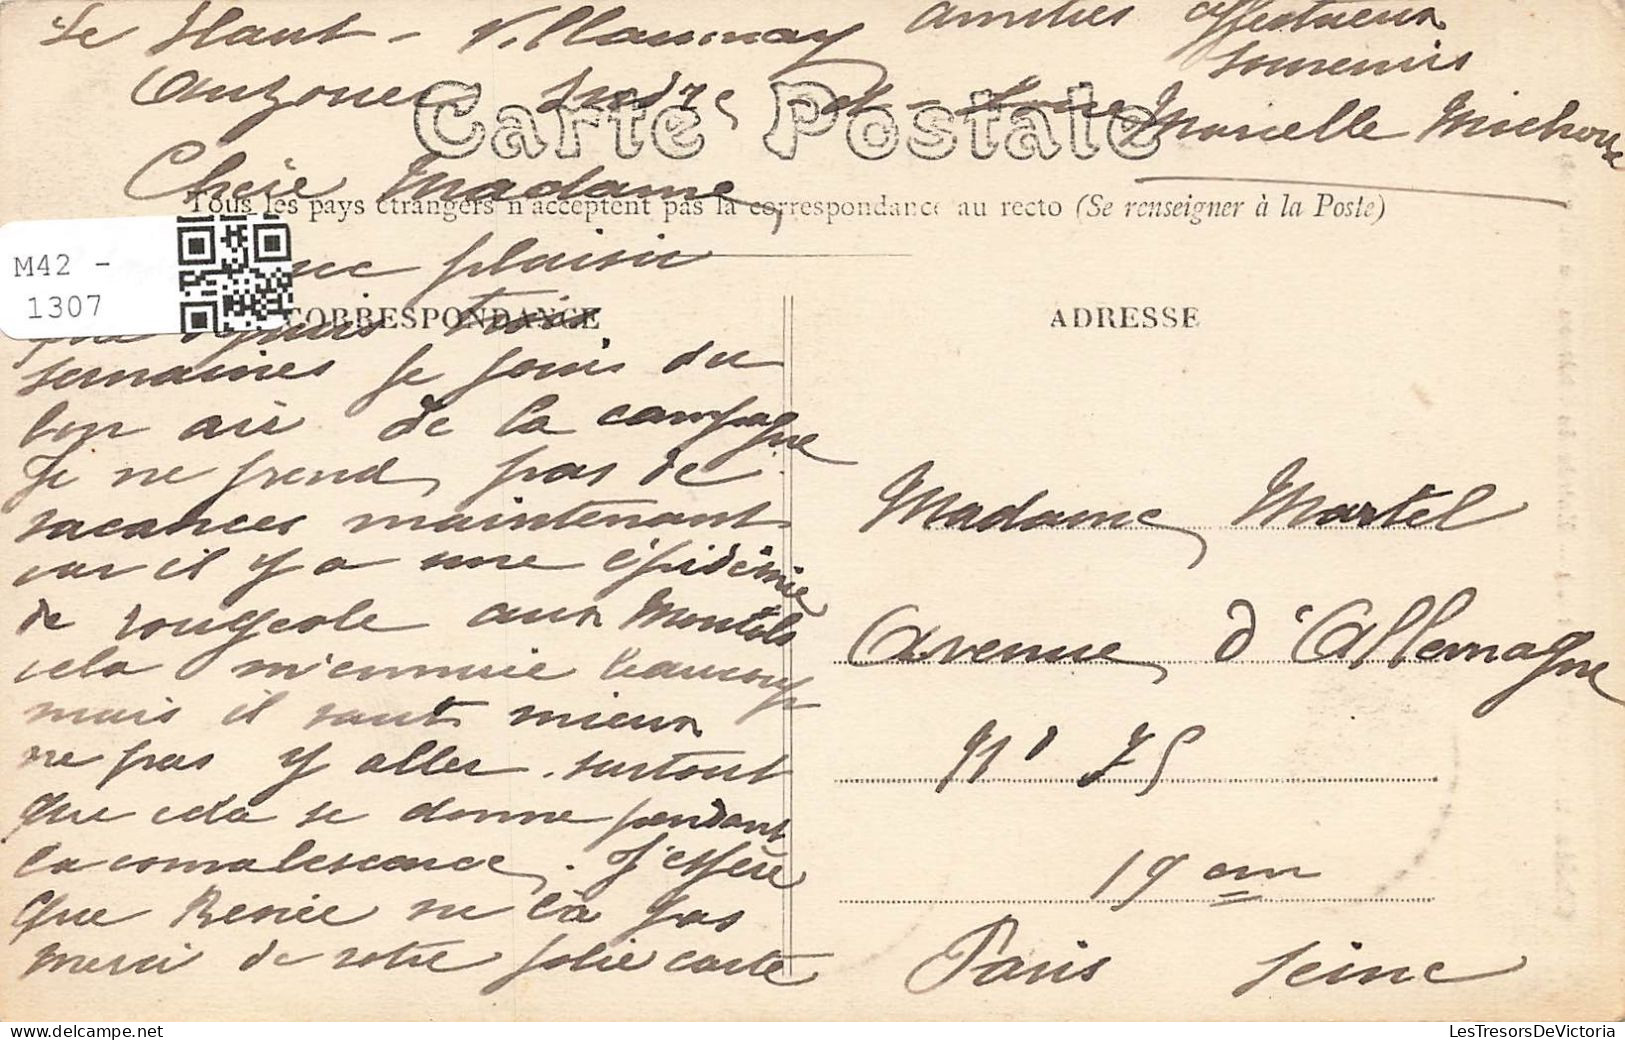 Le Haut - Villaumay
Auzouer Indre et - Loire
Chère Madame,
plaisir
que depuis trois
semaines je jouis du
bon air de la campagne
Je ne prend pas de
vacances maintenant
car il y a une épidémie
de rougeole aux Montils
cela m'ennuie beaucoup
mais il vaut mieux
ne pas y aller surtout
que cela se donne pendant
la convalescence. J'espère
que Renée ne l'a pas
merci de votre jolie carte
amitiés affectueux
souvenirs
Marcelle Michou
Carte Postale
Tous les pays étrangers n'acceptent pas la correspondance au recto (Se renseigner à la Poste)
CORRESPONDANCE
ADRESSE
Madame Martel
Avenue d'Allemagne
N° 75
19 em
Paris Seine
M42 -
1307
LesTresorsDeVictoria